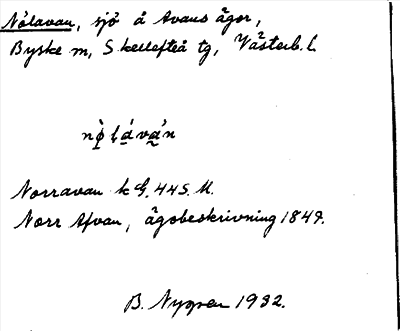 Nolavan, sjö å Avans ägor,
Byske m, Skellefteå tg, Västerb. l.
Norravan k G. 44 S. U.
Norr Afvan, ägobeskrivning 1849.
B. Nygren 1932.